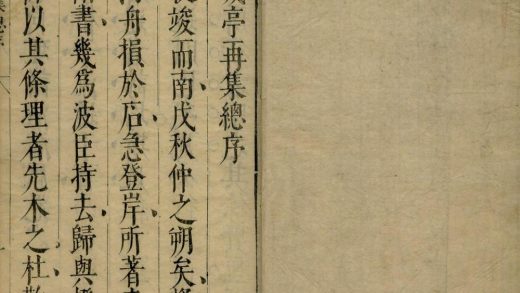 亭再集總序
竣而南戊秋仲之朔矣
舟損於石急登岸所著
書幾為波臣持去歸與
以其條理者先木之杜